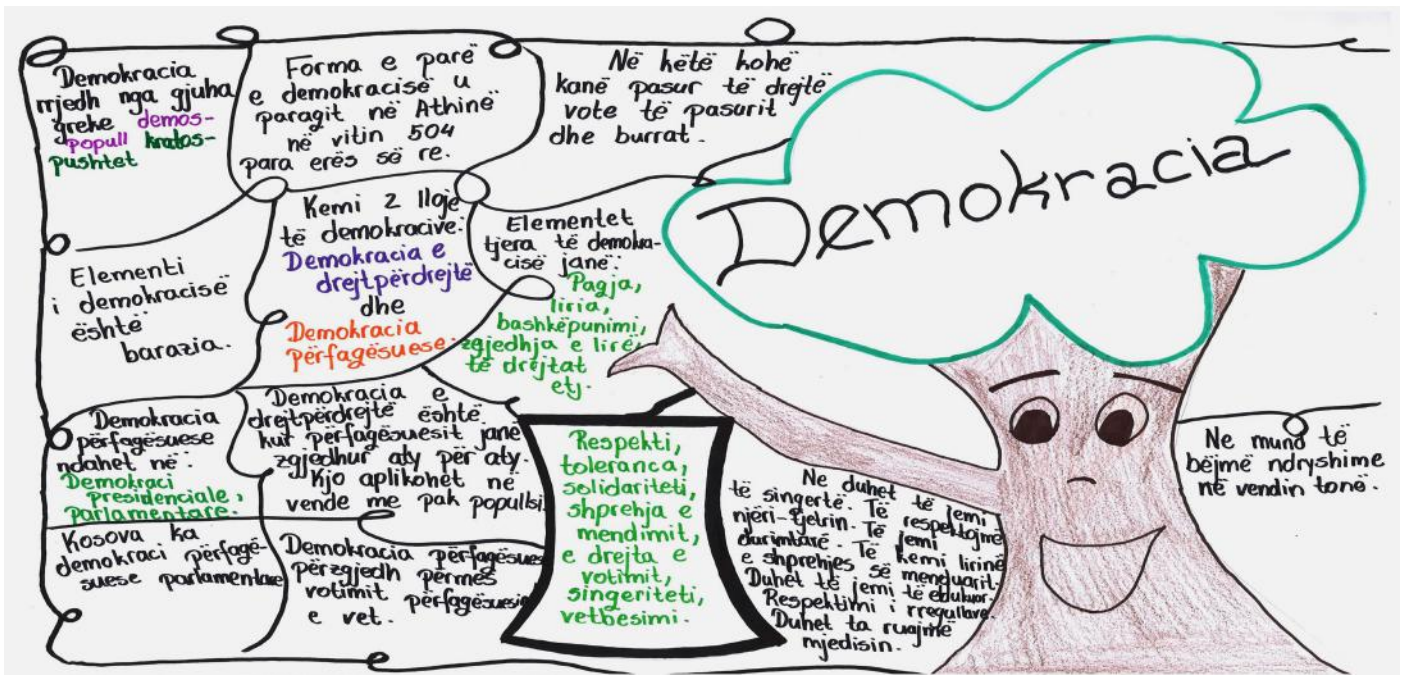 Demokracia
rrjedh nga gjuha
greke demos-
popull kratos-
pushtet
Forma e parë
e demokracisë u
paragit në Athinë
në vitin 504
para erës së re.
Në këtë kohë
kanë pasur të drejtë
vote të pasurit
dhe burrat.
Demokracia
Elementi
i demokracisë
është
barazia.
Kemi 2 lloje
të demokracive:
Demokracia e
drejtpërdrejtë
dhe
Demokracia
përfagësuese.
Elementet
tjera të demokra-
cisë janë:
Pagja,
liria,
bashkëpunimi,
zgjedhja e lirë,
të drejtat
etj.
Demokracia
përfagësuese
ndahet në:
Demokraci
Presidenciale,
Parlamentare.
Demokracia e
drejtpërdrejtë është
kur përfagësuesit janë
zgjedhur aty për aty.
Kjo aplikohet në
vende me pak popullsi.
Kosova ka
demokraci përfagë-
suese parlamentare
Demokracia përfagësues
përzgjedh përmes
votimit përfagësuesin
e vet.
Respekti,
toleranca,
solidariteti,
shprehja e
mendimit,
e drejta e
votimit,
singeriteti,
vetbesimi.
Ne duhet të jemi
të singertë. Të respektojmë
njëri-tjetrin. Të jemi
durimtarë. Të kemi lirinë
e shprehjes së menduarit.
Duhet të jemi të edukuar.
Respektimi i rregullave.
Duhet ta ruajmë
mjedisin.
Ne mund të
bëjmë ndryshime
në vendin tonë.